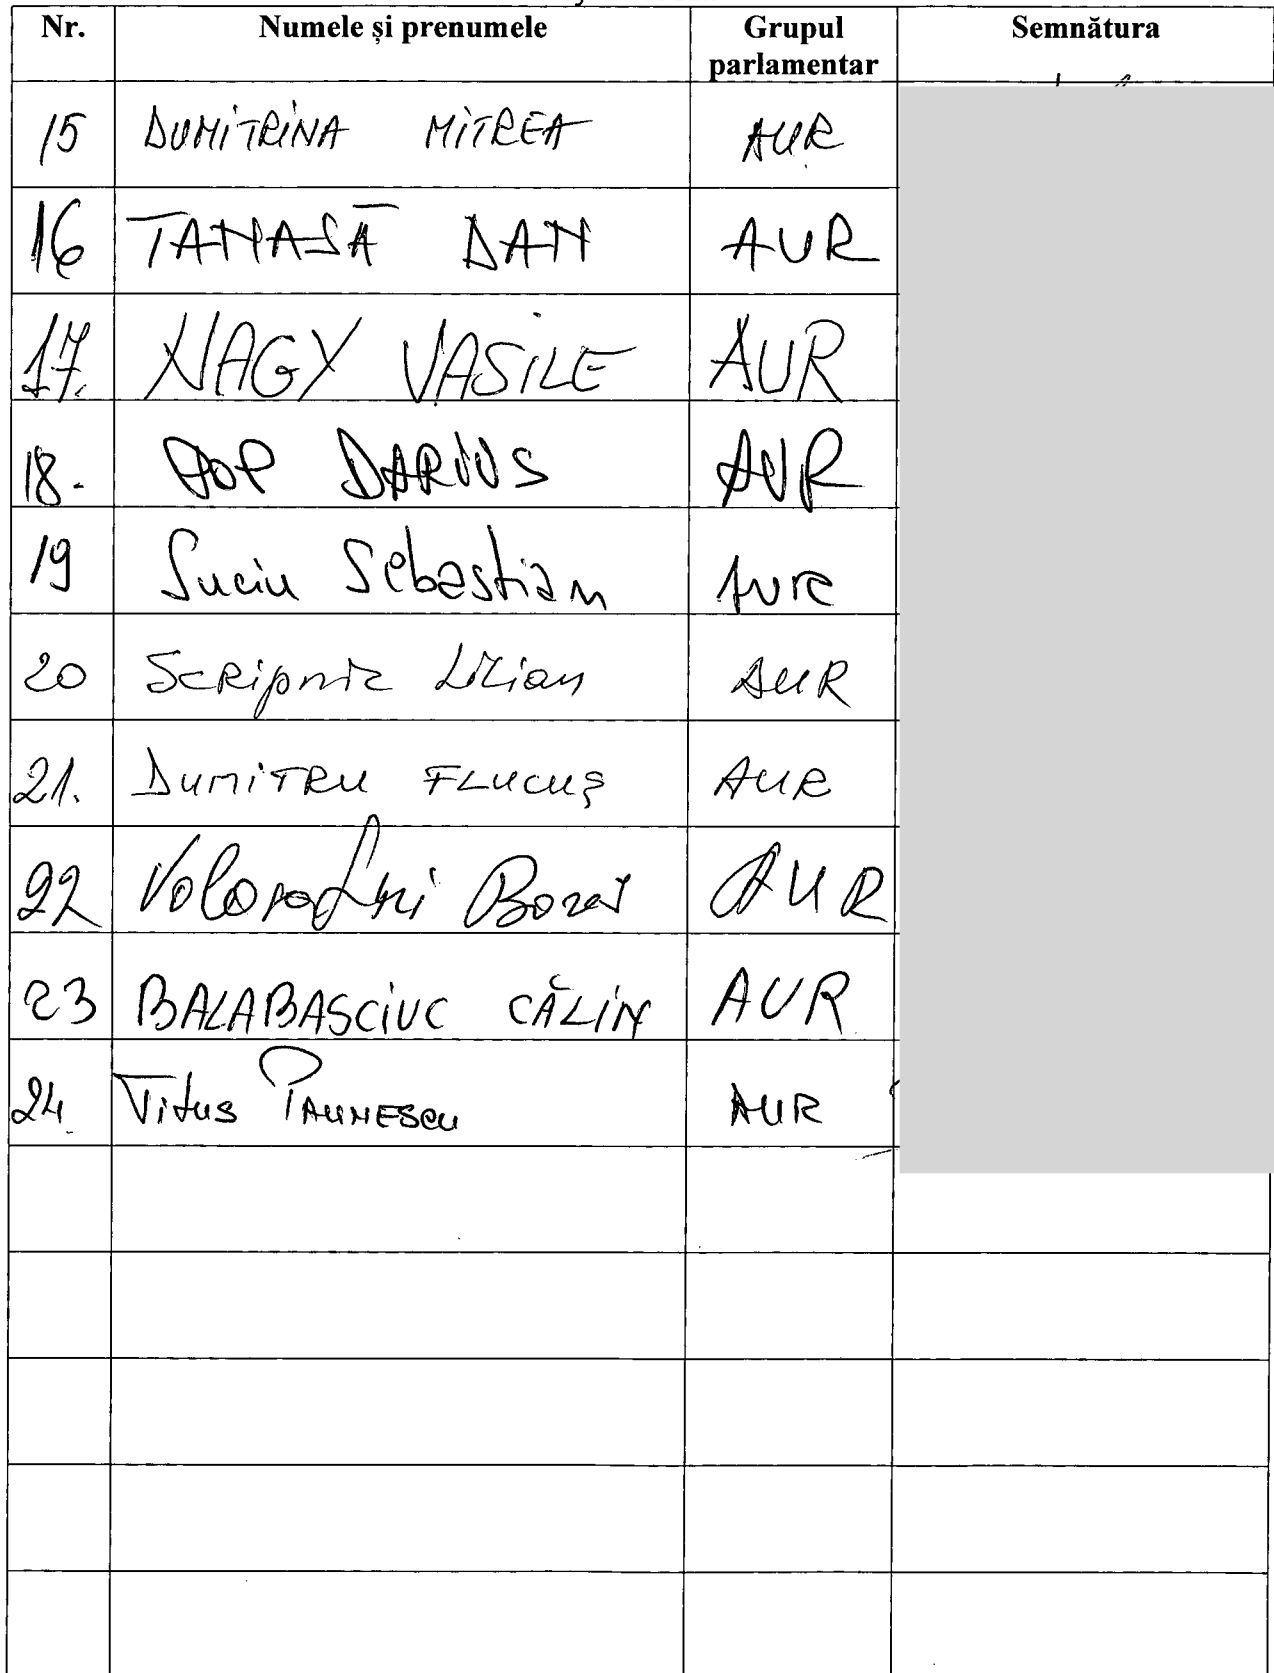 Nr. Numele și prenumele Grupul parlamentar Semnătura
15 DUMITRINA MITREA AUR
16 TANASĂ DAN AUR
17. NAGY VASILE AUR
18. POP DARIUS AUR
19 Suciu Sebastian AUR
20 Scripnic Lilian AUR
21. DUMITRU FLUCUȘ AUR
22 AUR
23 BALABASCIUC CĂLIN AUR
24. Titus PAUNESCU AUR